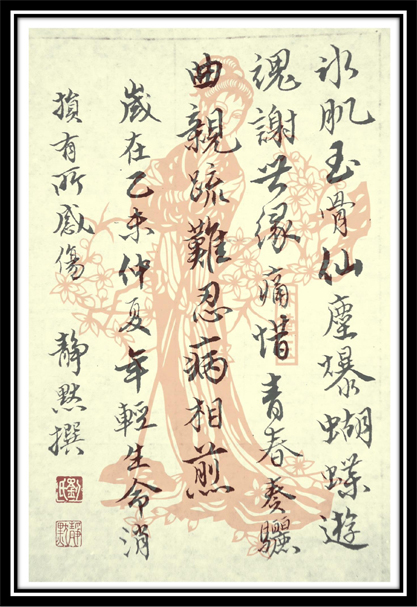 冰肌玉骨仙塵爆蝴蝶遊
魂謝世緣痛惜青春奏驪
曲親疏難忍病相煎
歲在乙未仲夏年輕生命消
損有所感傷 靜默撰
劉氏
靜默